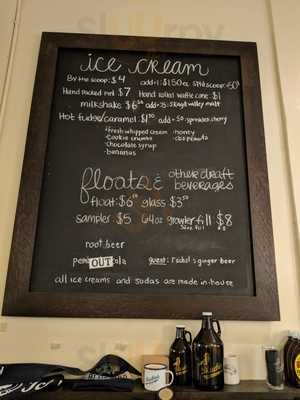 ice cream
By the scoop: $4 add-1: $1.50
Hand packed pint $7 Hand rolled waffle cone $1
milkshake $6.50 add .75: Skagit valley malt
Hot fudge/caramel: $1.50 add .50: sprinkles, cherry
*fresh whipped cream · honey
· cookie crumbs
· chocolate syrup
· bananas
floats & other draft
beverages
float: $6 glass $3.50
sampler: $5 64oz growler fill $8
root beer
OUT
guest: Rachel's ginger beer
all ice creams and sodas are made in-house